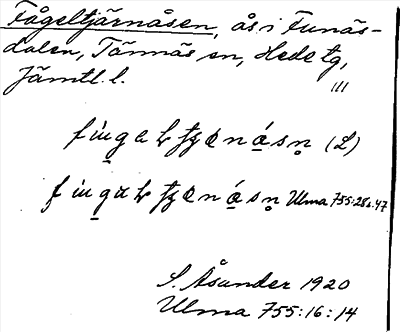 Fågeltjärnåsen, ås i Funäs-
dalen, Tännäs sn, Hede tg,
Jämtl. l.
III
(L)
Ulma 755:28 s. 47
S. Åsander 1920
Ulma 755:16:14